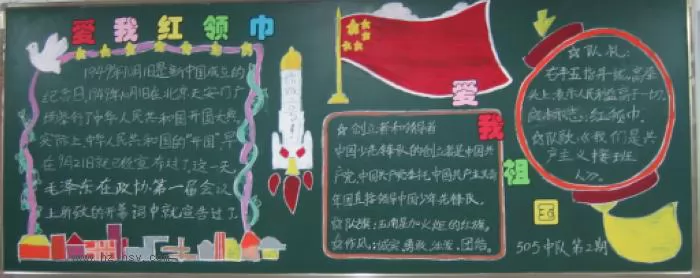 爱我红领巾
1949年10月1日是新中国成立的
纪念日,1949年10月1日在北京天安门广
场举行了中华人民共和国开国大典,
实际上,中华人民共和国的"开国",早
在9月21日就已经宣布过了,这一天
毛泽东在政协第一届会议
上所致的开幕词中就宣告过了
爱我祖
☆创立者和领导者
中国少年先锋队的创立者是中国共
产党,中国共产党委托中国共产主义青
年团直接领导中国少年先锋队。
☆队旗:五角星加火炬的红旗。
☆作风:诚实、勇敢、活泼、团结。
☆队礼:
右手五指并拢,高举
头上,表示人民利益高于一切。
队的标志:红领巾。
☆队歌:《我们是共
产主义接班
人》。
505中队第2期